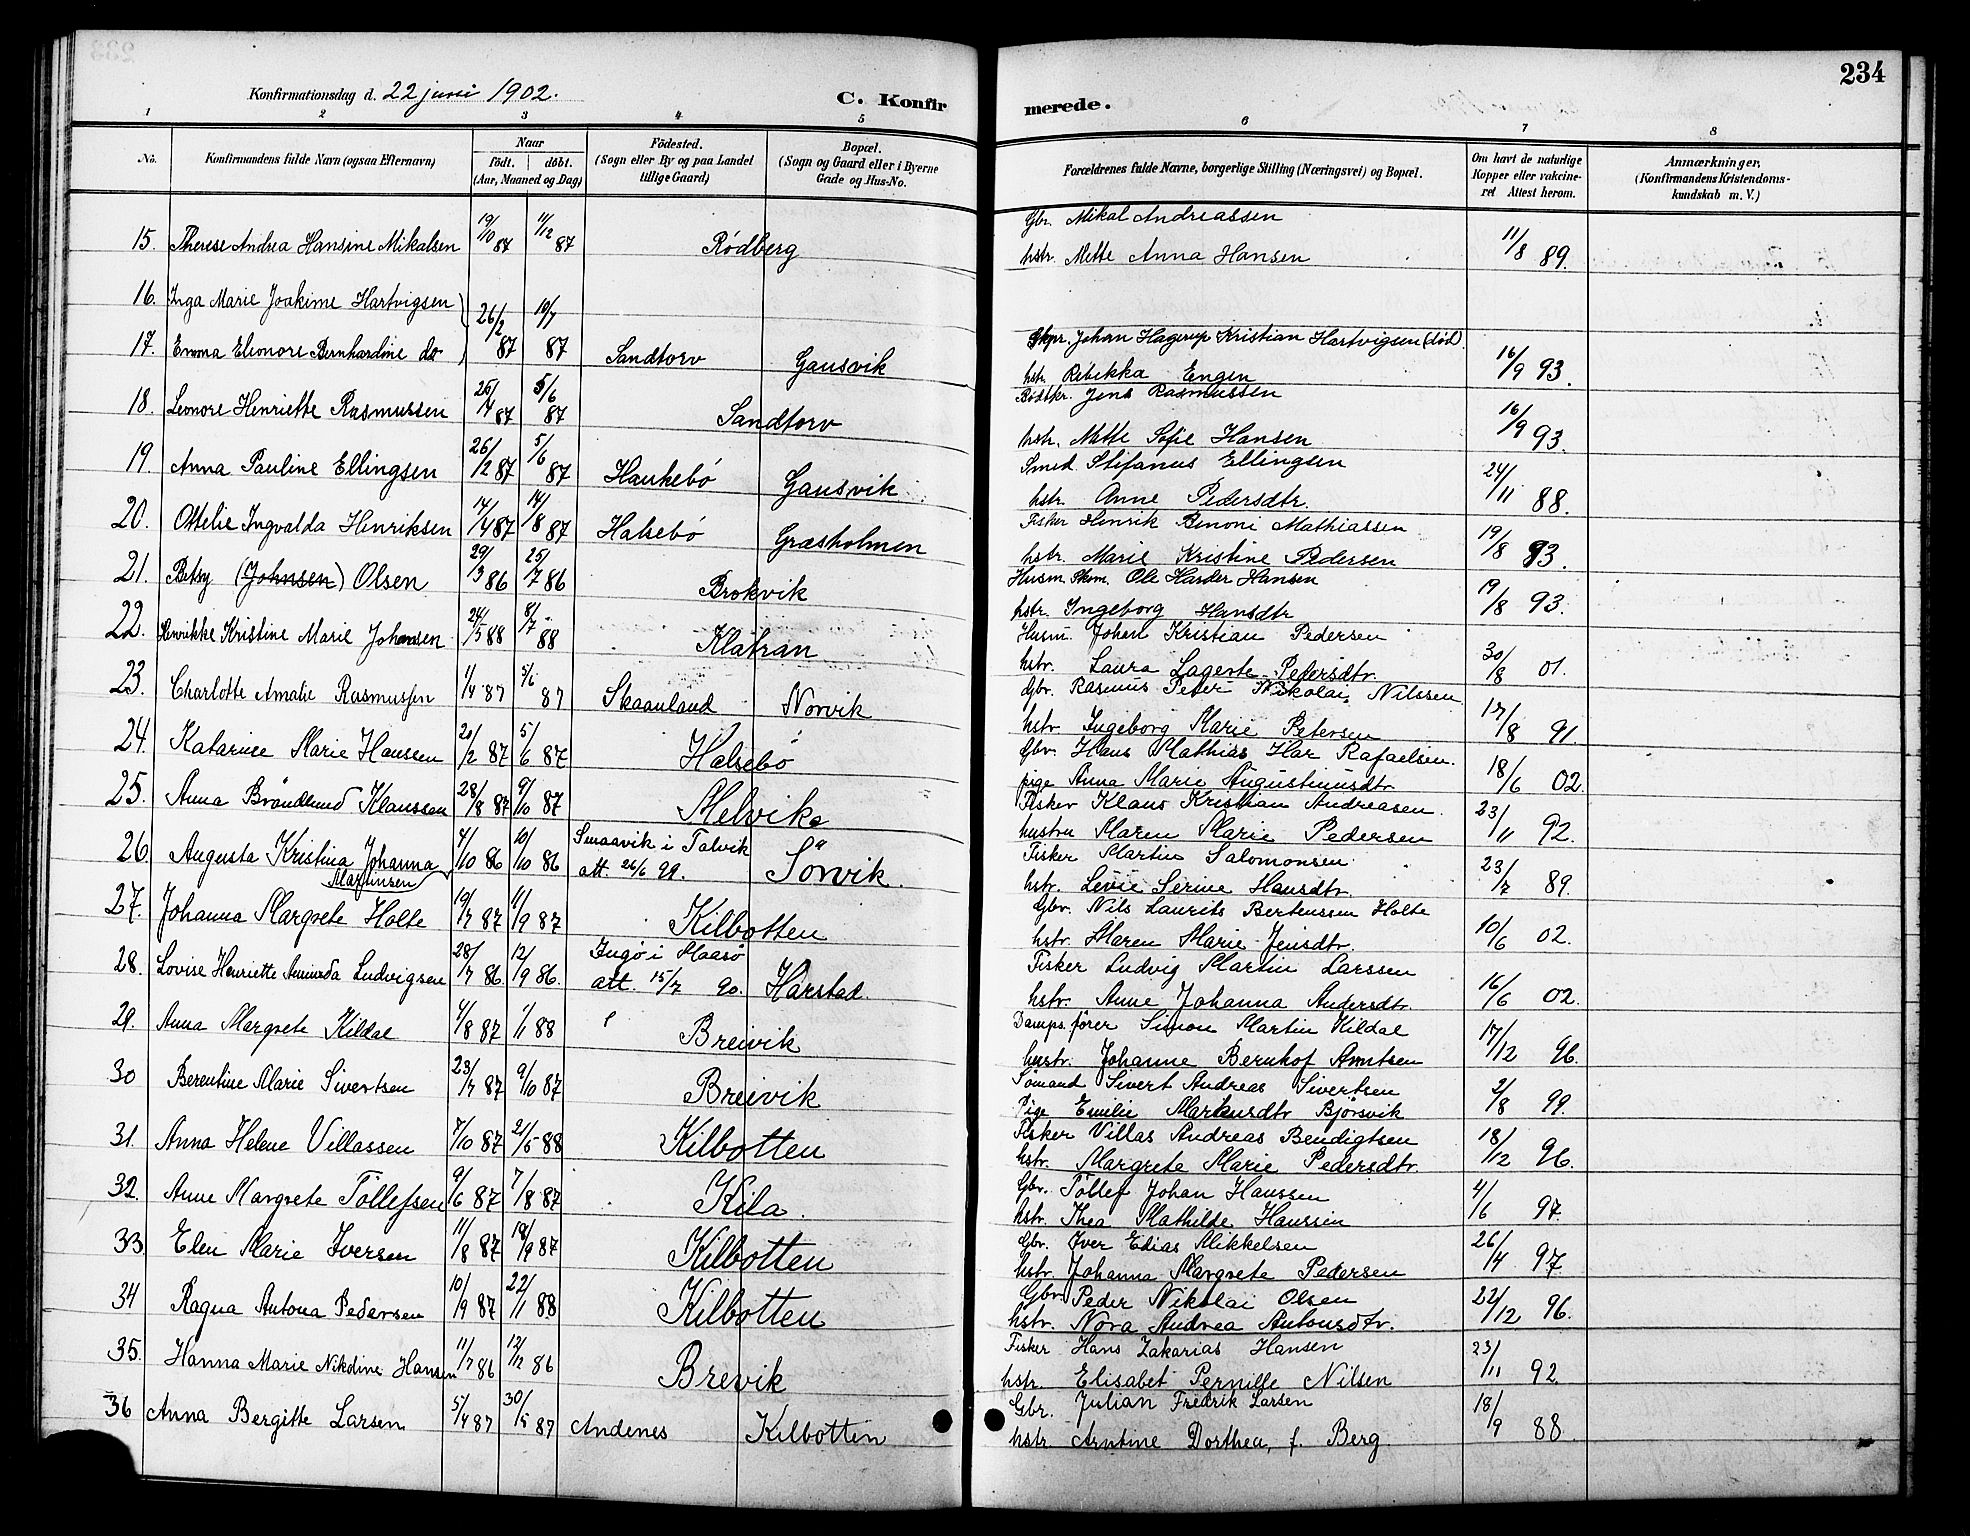 234
Konfirmationsdag d. 22 juni 1902.
C. Konfirmerede.
1 2 3 4 5 6 7 8
No. Konfirmandens fulde Navn (ogsaa Efternavn) Naar født. døbt. (Aar, Maaned og Dag) Fødested. (Sogn eller By og paa Landet tillige Gaard) Bopæl. (Sogn og Gaard eller i Byerne Gade og Hus-No. Forældrenes fulde Navne, borgerlige Stilling (Næringsvei) og Bopæl. Om havt de naturlige Kopper eller vakcineret Attest herom. Anmærkninger, (Konfirmandens Kristendomskundskab m. V.)
Gbr. Mikal Andreassen
15. Therese Andrea Hansine Mikalsen 19/10 87 11/12 87 Rødberg hstr. Mette Anna Hansen 11/8 89.
16. Inga Marie Joakime Hartvigsen 26/2 87 10/7 87
Skpr. Johan Hagerup Kristian Hartvigsen (død)
17. Emma Eleonore Bernhardine do Sandtorv Gausvik hstr. Rebekka Engen 16/9 93.
Bødtkr. Jens Rasmussen
18. Leonore Henriette Rasmussen 25/4 87 5/6 87 Sandtorv hstr. Mette Sofie Hansen 16/9 93.
Smed. Stefanus Ellingsen
19. Anna Pauline Ellingsen 26/2 87 5/6 87 Haukebø Gausvik hstr. Anne Pedersdtr. 24/11 88.
Fisker Henrik Benoni Mathiassen
20. Ottelie Ingvalda Henriksen 14/4 87 14/8 87 Halsebø Græsholmen hstr. Marie Kristine Pedersen 19/8 93.
Husm. Skom. Ole Harder Hansen
21. Betsy (Johnsen) Olsen 29/3 86 25/7 86 Brokvik hstr. Ingeborg Hansdtr 19/8 93.
Husm. Johan Kristian Pedersen
22. Henrikke Kristine Marie Johansen 24/5 88 8/7 88 Klåtran hstr. Laura Lagerte Pedersdtr. 30/8 01.
Gbr. Rasmus Peter Nikolai Nilssen
23. Charlotte Amalie Rasmussen 1/4 87 5/6 87 Skaanland Norvik hstr Ingeborg Marie Petersen 17/8 91.
Gbr. Hans Mathias Har Rafaelsen.
24. Katarine Marie Hanssen 20/2 87 5/6 87 Halsebø pige Anna Marie Augustinusdtr 18/6 02.
Fisker Klaus Kristian Andreasen
25. Anna Brøndlund Klaussen 28/8 87 9/10 87 Melvik hustru Maren Marie Pedersen 23/11 92.
Fisker Martin Salomonsen
26 Augusta Kristina Johanna Martinsen 4/10 86 10/10 86 Smaavik i Talvik att. 26/6 99. Sørvik. hstr. Levie Serine Hansdtr. 23/7 89.
Gbr. Nils Laurits Bertenssen Holte
27. Johanna Margrete Holte 19/7 87 11/9 87 Kilbotten hstr. Maren Marie Jensdtr. 10/6 02.
Fisker Ludvig Martin Larssen
28. Lovise Henriette Aminda Ludvigsen 28/7 86 12/9 86. Ingø i Maasø att. 15/7 90. Harstad. hstr. Anne Johanna Andersdtr. 16/6 02.
Damps.fører Simon Martin Kildal
29. Anna Margrete Kildal 4/8 87 1/1 88 Breivik hustr. Johanne Bernhof Arntsen 17/12 96.
Sømand Sivert Andreas Sivertsen
30 Berentine Marie Sivertsen 23/7 87 9/10 87 Breivik Pige Emilie Markusdtr Bjørsvik 2/8 99.
Fisker Villas Andreas Bendigtsen
31. Anna Helene Villassen 7/10 87 21/5 88 Kilbotten hstr. Margrete Marie Pedersdtr 18/12 96.
Gbr. Tollef Johan Hanssen
32. Anne Margrete Tollefsen 9/6 87 7/8 87 Kila. hstr. Thea Mathilde Hanssen 4/6 97.
Gbr. Iver Edias Mikkelsen
33. Elen Marie Iversen 11/8 87 18/9 87 Kilbotten hstr. Johanna Margrete Pedersen 26/4 97.
Gbr Peder Nikolai Olsen
34 Ragna Antona Pedersen 10/9 87 22/1 88 Kilbotten hstr. Nora Andrea Antonsdtr. 22/12 96.
Fisker Hans Zakarias Hansen
35. Hanna Marie Nikoline Hansen 11/7 86 12/12 86 Brevik hstr. Elisabet Pernille Nilsen 23/11 92.
Gbr. Julian Fredrik Larsen
36 Anna Bergitte Larsen 5/4 87 30/5 87 Andenes Kilbotten hstr. Arntine Dorthea, f. Berg 18/9 88.